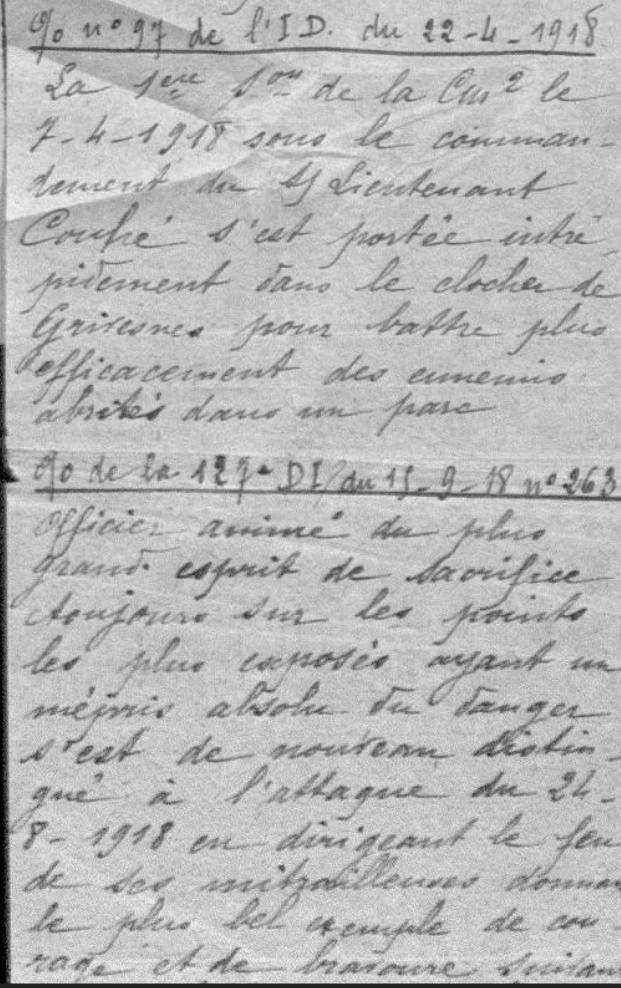 O/o n° 97 de l'ID. du 22-4-1918
La 1ère Son de la Cm2 le
7-4-1918 sous le comman-
dement du S/Lieutenant
s'est portée intré
pidement dans le clocher de
Grivesnes pour battre plus
efficacement des ennemis
abrités dans un parc
O/o de la 127e DI/du 15-9-18 n° 263
Officier animé du plus
grand esprit de sacrifice
toujours sur les points
les plus exposés ayant un
mépris absolu du danger
s'est de nouveau distin-
gué à l'attaque du 24-
8-1918 en dirigeant le feu
de ses mitrailleuses donnan
le plus bel exemple de cou-
rage et de bravoure suivan